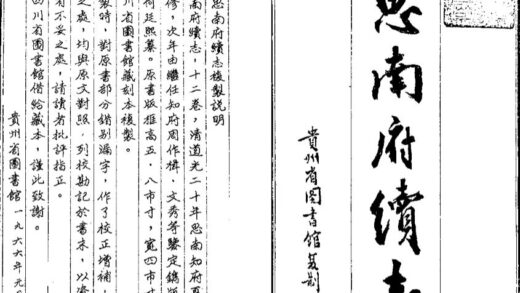 思南府續志
貴州省图書館复制
思南府續志複製説明
南府續志，十二卷，清道光二十年思南府知府夏
修，次年由繼任知府周作楫、文秀等鑒定鎸版
柯廷熙纂。原書版框高五．八市寸，寬四市寸
川省图書館藏刻本複製。
製時，對原書部分錯別漏字，作了校正增補，
之處，均與原文對照，列校勘記於書末，以資
有不妥之處，請讀者批評指正。
四川省图書館借給藏本，謹此致謝。
貴州省图書館 一九六六年元